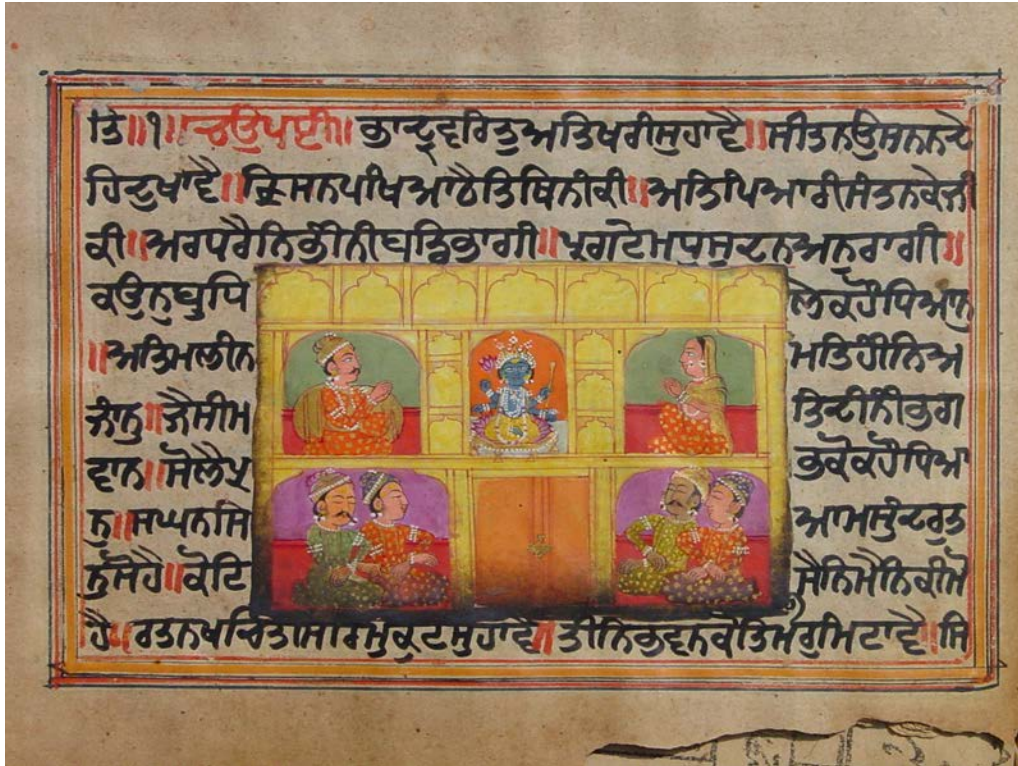 ਤਿ॥੧॥ਚਉਪਈ॥ ਭਾਦ੍ਰਵਰਿਤੁਅਤਿਖਰੀਸੁਹਾਵੈ॥ਸੀਤਨਉਸਨਨਦੇ
ਹਿਦੁਖਾਵੈ॥ਕ੍ਰਿਸਨਪਖਿਆਠੈਤਿਥਿਨੀਕੀ॥ਅਤਿਪਿਆਰੀਸੰਤਨਕੇਜੀ
ਕੀ॥ਅਰਧਰੈਨਿਭੀਨੀਬਡਿਭਾਗੀ॥ਪ੍ਰਗਟੇਮਧੁਸੂਦਨਅਨੁਰਾਗੀ॥
ਕਉਨੁਬੁਧਿ ਲੇਕਹੌਧਿਆਨੁ
॥ਅਤਿਮਲੀਨ ਮਤਿਹੀਨਿਅ
ਜਾਨੁ॥ਜੈਸੀਮ ਤਿਦੀਨੀਭਗ
ਵਾਨ॥ਸੋਲੈਪ੍ਰ ਭਕੋਕਹੌਧਿਆ
ਨੁ॥ਸਘਨਸਿ ਆਮਸੁੰਦਰਤ
ਨੁਸੋਹੈ॥ਕੋਟਿ ਸੈਨਿਮੈਨਿਕੀਮੋ
ਹੈ॥ਰਤਨਖਚਿਤਸਿਰਮੁਕੁਟਸੁਹਾਵੈ॥ਤੀਨਿਭਵਨਕੋਤਿਮਰੁਮਿਟਾਵੈ॥ਸਿ